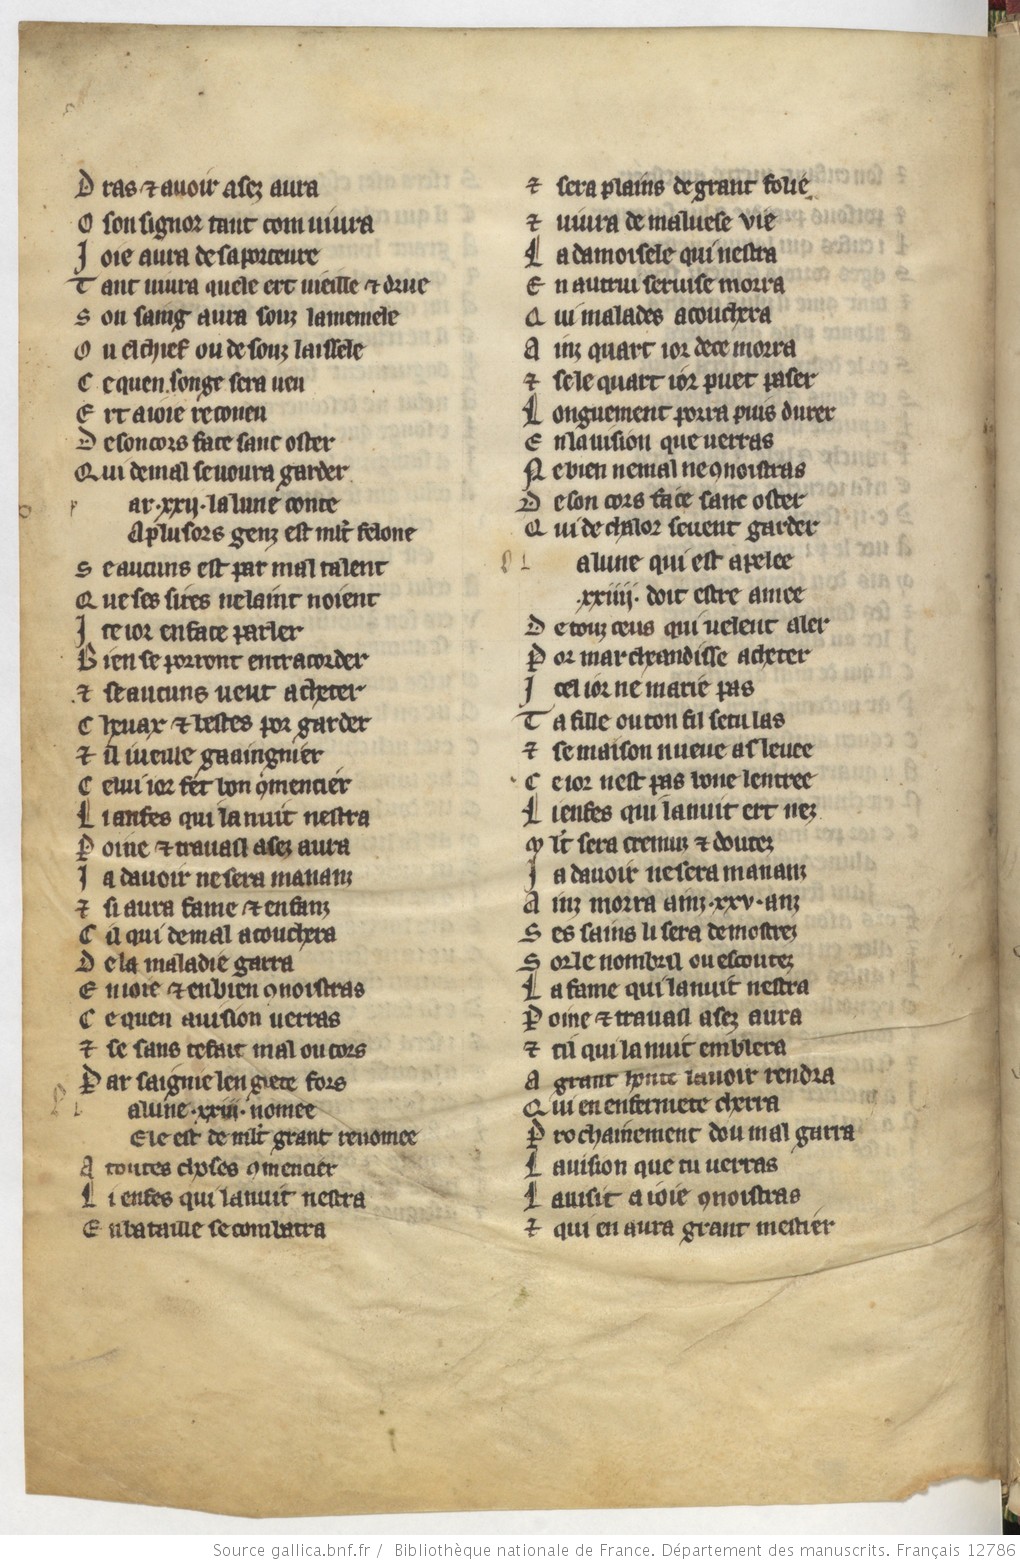 D ras ⁊ auoir asez aura
O son signor tant com uiura
J oie aura de sa porteure
T ant uiura quele ert vieille ⁊ drue
S on saing aura souz la memele
O u el chief ou de souz laissele
C e quen songe sera ueu
E rt a ioie reconeu
D e son cors face sanc oster
Q ui de mal se uoura garder
ar .xxij. la lune conte
A plusors genz est mlt felone
S e aucuns est par mal talent
Q ue ses sires ne laint noient
J ce ior en face parler
B ien se porront entracorder
⁊ se aucuns ueut acheter
C heuax ⁊ bestes por garder
⁊ il iueille gaaingnier
C elui ior fet bon 9mencier
L i anfes qui la nuit nestra
P oine ⁊ trauail asez aura
J a dauoir ne sera mananz
⁊ si aura fame ⁊ enfanz
C il qui de mal acouchera
D e la maladie garra
E n ioie ⁊ en bien 9noistras
C e quen auision uerras
⁊ se sans te fait mal ou cors
P ar saignie len giete fors
a lune .xxiij. nomee
E le est de mlt grant renomee
A toutes choses 9mencier
L i enfes qui la nuit nestra
E n bataille se combatra
⁊ sera plains de grant folie
⁊ uiura de maluese vie
L a damoisele qui nestra
E n autrui seruise morra
Q ui malades acouchera
A inz quart ior de ce morra
⁊ se le quart ior puet paser
L onguement porra puis durer
E n la uision que uerras
N e bien ne mal ne 9noistras
D e son cors face sanc oster
Q ui de chalor se ueut garder
a lune qui est apelee
.xxiiij. doit estre amee
D e touz ceus qui uelent aler
P or marchandisse acheter
J cel ior ne marie pas
T a fille ou ton fil se tu las
⁊ se maison nueue as leuee
C e ior nest pas bone lentree
L i enfes qui la nuit ert nez
M lt sera cremuz ⁊ doutez
J a dauoir ne sera mananz
A inz morra ainz .xxv. anz
S es sains li sera demostrez
S or le nombril ou es coutez
L a fame qui la nuit nestra
P oine ⁊ trauail asez aura
⁊ cil qui la nuit emblera
A grant honte lauoir rendra
Q ui en enfermete cherra
P rochainement dou mal garra
L auision que tu uerras
L auisit a ioie 9noistras
⁊ qui en aura grant mestier
Source gallica.bnf.fr / Bibliothèque nationale de France. Département des manuscrits. Français 12786